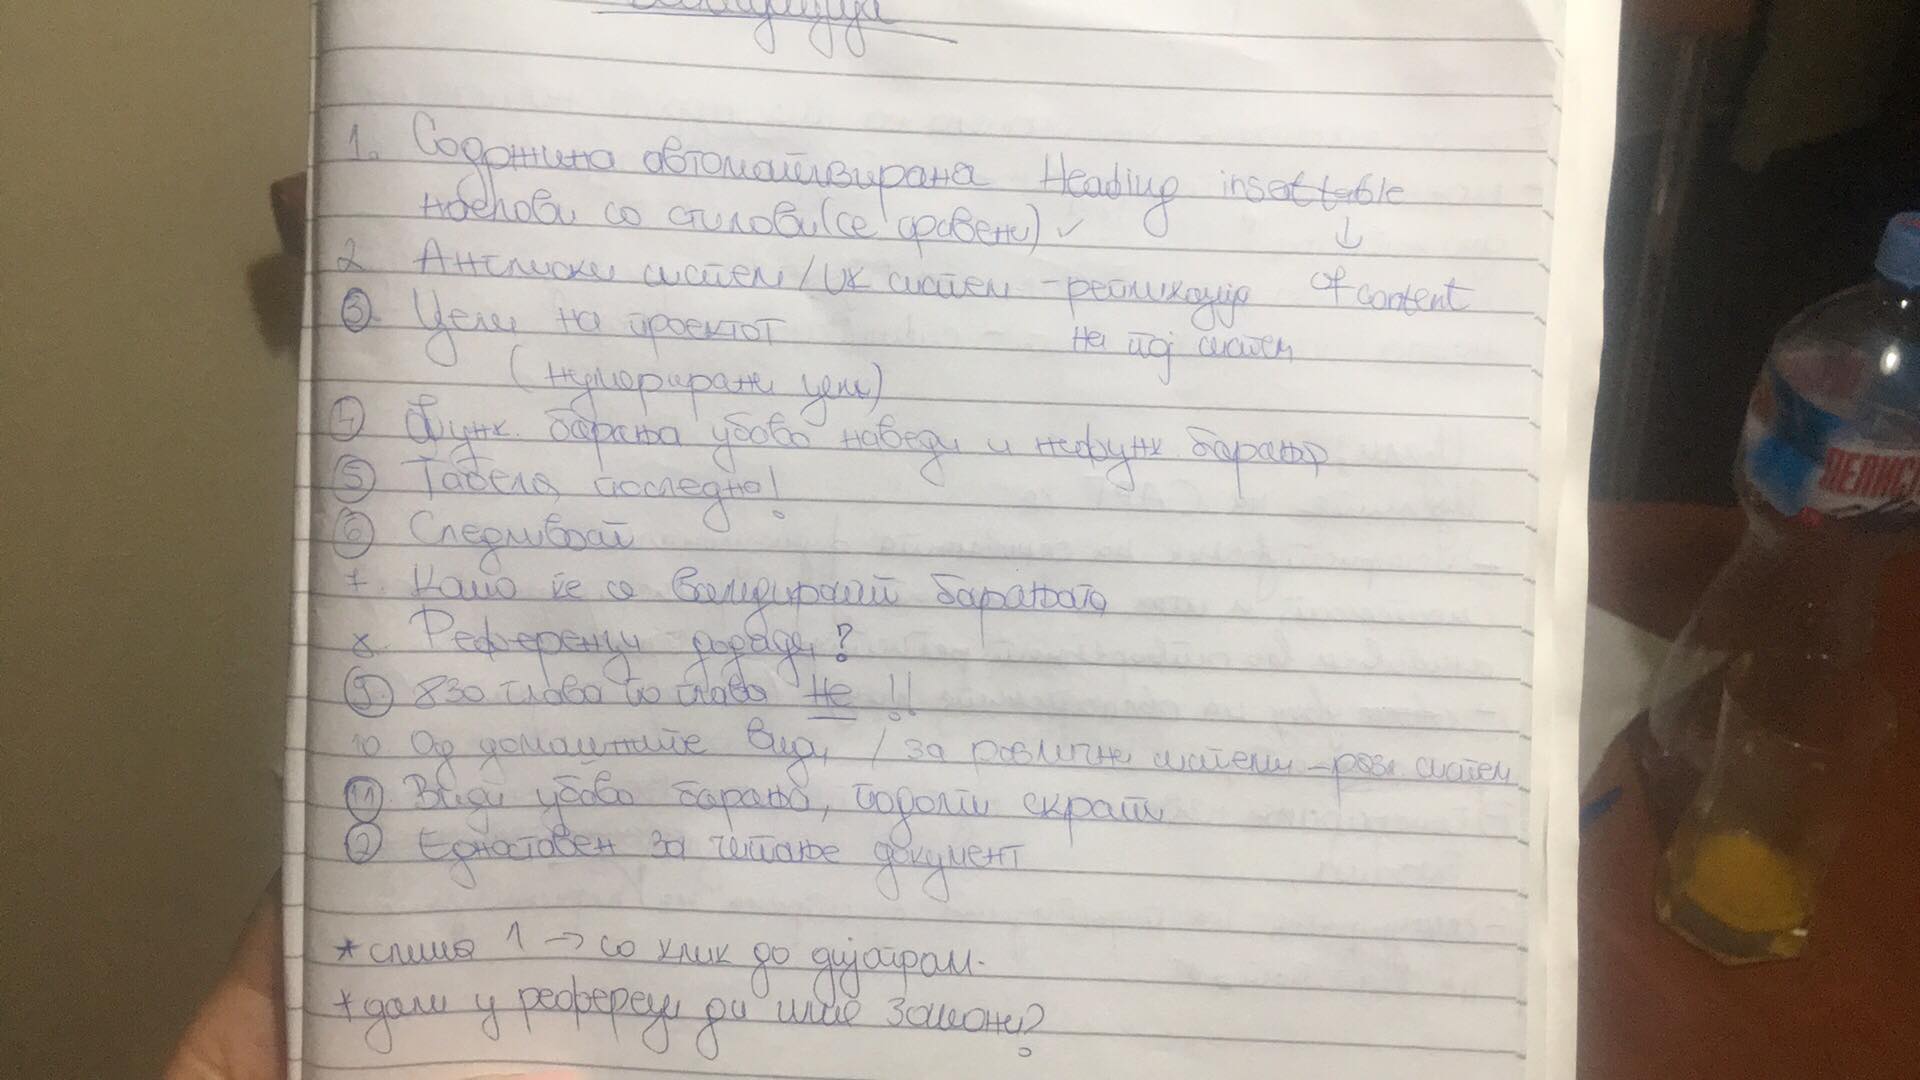 1. Содржина автоматизирана Heading insert table
со стилови (се	 правени) ✓ ↓
2. Англиски систем / UK систем - репликација of content
③. Цели на проектот на тој систем
(нумерирани цели)
④ Функ. барања убаво наведи и нефунк барања
⑤ Табела последно!
⑥ Следливост
7. Како ќе се валидираат барањата
8. Референци додади?
⑨. 830 глава по глава Не !!
10. Од домашните види / за различни системи - разл. систем
⑪ Види убаво барања, подолги скрати
Едноставен за читање документ
* слика 1 → со клик до дијаграм.
* дали у референци да има закони?
ПЕЛИСТ